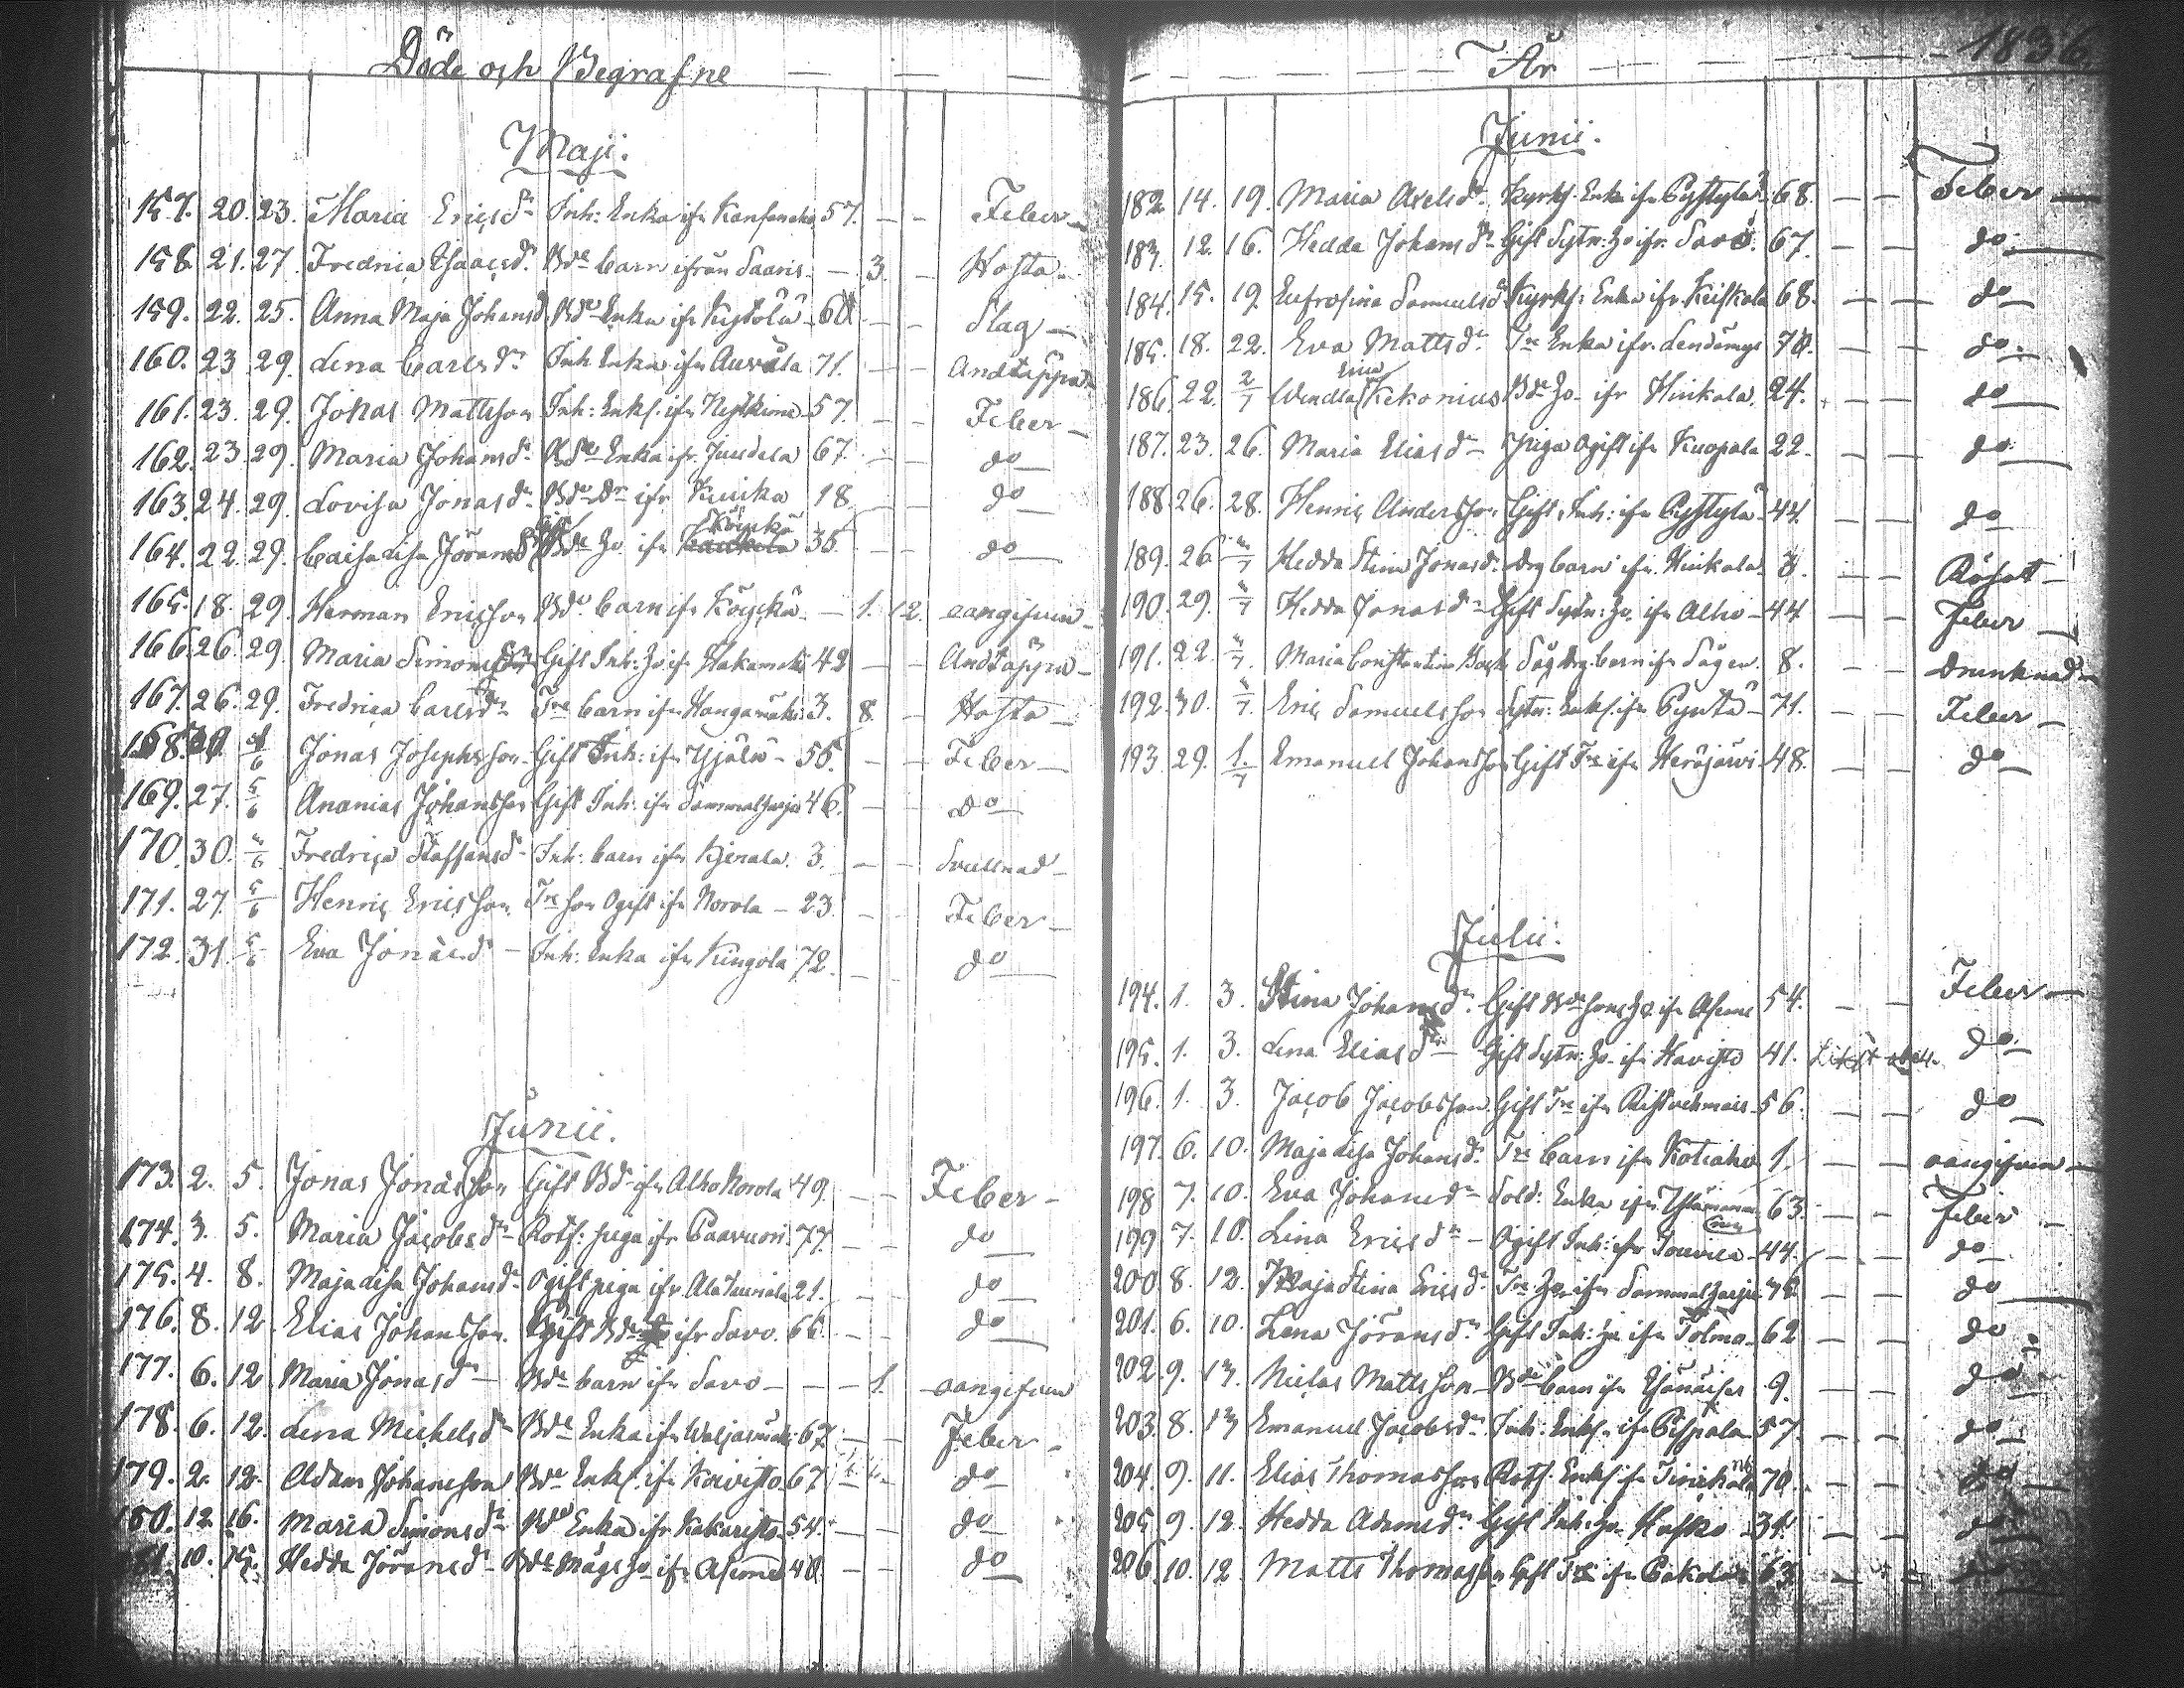 Döde och Begrafne
Maji.
157. 20. 23. Maria Ericsdr Inh: Enka ifr 57. — — Feber
158. 21. 27. Fredrica Isaacsdr Bde barn ifrån Saaris — 3. — Hosta
159. 22. 25. Anna Maja Johansdr Bde Enka ifr — — Slag
160. 23 29. Lena Carlsdr Inh Enka ifr Auvola 71. — — Andtäppa
161. 23. 29. Johas Mattsson Inh: Enkl. ifr 57. — — Feber
162. 23. 29. Maria Johansdr Bde Enka ifr Juudela 67. — — do
163. 24. 29. Lovisa Jonasdr Bde Dr ifr 18. — — do
164. 22. 29. Caisa Lisa Jöransdr Bde Ho ifr Köyckä 35 — — do
165. 18. 29. Herman Ericsson Bde barn ifr Köyckä — 1. 12. oangifven
166. 26. 29. Maria Simonsdr Gift Inh: Ho ifr Hakamäki 42 — — Andtäppa
167. 26. 29. Fredrica Carlsdr Tre barn ifr Hangamäki 3. 8. — Hosta
168. Jonas Josephsson Gift Inh: ifr Yjälä 55. — — Feber
169. 27. 5/6 Ananias Johansson Gift Inh: ifr Sammalharju 46. — — do
170. 30. Fredrica Staffansdr Inh: barn ifr 3. — — Svullnad
171. 27. 5/6 Henric Ericsson Tre son Ogift ifr Norola 23. — — Feber
172. 31. 5/6 Eva Jonasdr Inh: Enka ifr Kingola 72. — — do
Junii.
173. 2. 5. Jonas Jonasson Gift Bde ifr Alho Norola 49. — — Feber
174. 3. 5. Maria Jacobsdr Roth: piga ifr Paavuori 77. — — do
175. 4. 8. Maja Lisa Johansdr Ogift piga ifr 21. — — do
176. 8. 12. Elias Johansson Gift Bde ifr Savo. 66. — — do
177. 6. 12. Maria Jonasdr Bde barn ifr Savo — — — 1. oangifven
178. 6. 12. Lena Michelsdr Bde Enka ifr 67. — — Feber
179. 2. 12. Adam Johansson Bde Enkl. ifr Koivisto 67. — — do
180. 12. 16. Maria Simonsdr Bde Enka ifr Kakaristo 54. — — do
10. 15. Hedda Jöransdr Bde Mågs Ho ifr 40. — — do
I År 1836.
Junii.
182. 14. 19. Maria Axelsdr Kyrkh: Enka ifr Pystylä 68. — — Feber
183. 12. 16. Hedda Johansdr Gift Sytn: Ho ifr Savo. 67. — — do
184. 15. 19. Eufrosina Samuelsdr Kyrkh: Enka ifr 68. — — do
185. 18. 22. Eva Mattsdr Tre Enka ifr 70. — — do
186. 22. 2/7 Wendla Erica Kekonius Bde Ho ifr Hinkala. 24. — — do
187. 23. 26. Maria Eliasdr Piga Ogift ifr Kuopala 22. — — do
188. 26. 28. Henric Andersson Gift Inh: ifr Pystylä 44. — — do
189. 26 Hedda Stina Jonasdr Drg barn ifr Hinkala 3. — — Rösot
190. 29. Hedda Jonasdr Gift Sytn: Ho ifr Alho 44. — — Feber
191. 22. Maria Constantina Såg Drg barn ifr Sågen. 8. — — drunknad
192. 30. Eric Samuelsson Sytn: Enkl. ifr Pyntä 71. — — Feber
193. 29. 1/7 Emanuel Johansson Gift Tre ifr Heräjärvi 48. — — do
Julii.
194. 1. 3. Stina Johansdr Gift Bde sons Ho ifr 54. — — Feber
195. 1. 3. Lena Eliasdr Gift Sytn: Ho ifr Havisto 41. do
196. 1. 3. Jacob Jacobsson Gift Tre ifr 56. — — do
197. 6. 10. Maja Lisa Johansdr Tre barn ifr Kotiaho 1. — — oangifven
198 7. 10. Eva Johansdr Sold: Enka ifr 63. — — Feber
199 7. 10. Lina Ericsdr Ogift Inh: ifr 44. — — do
200. 8. 12. Maja Stina Ericsdr Tre Ho ifr Sammalharju — — do
201. 6. 10. Lena Jöransdr Gift Inh: Ho ifr Tolma 62 — — do
202. 9. 13. Niclas Mattsson Bde barn ifr 9. — — do
203. 8. 13 Emanuel Jacobsdr Inh: Enkl. ifr Pispala 57. — — do
204. 9. 11. Elias Thomasson Roth. Enkl. ifr 70. — — do
205. 9. 12. Hedda Adamsdr Gift Inh: Ho Hasko 34. — — do
206. 10. 12. Matts Thomasson Gift Tre ifr Pakola 63. — — do